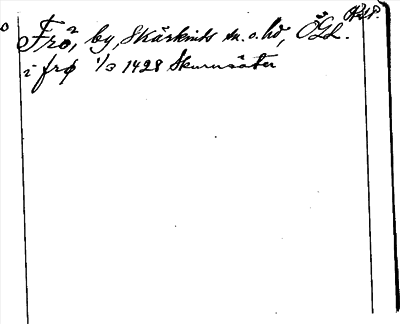 Frö², by, Skärkinds sn. o. hd, Ögl.
i frø 1/3 1428 Skurusäter